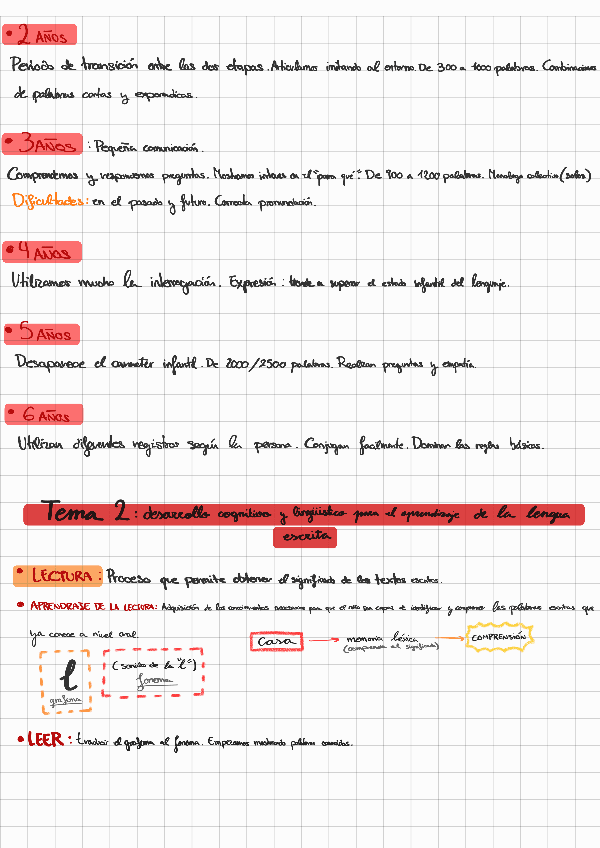 • 2 AÑOS
Periodo de transición entre las dos etapas. Articulamos imitando al entorno. De 300 a 1000 palabras. Combinaciones
de palabras cortas y esporádicas.
• 3 AÑOS : Pequeña comunicación.
Comprendemos y respondemos preguntas. Mostramos interes en el "para qué". De 900 a 1200 palabras. Monologo colectivo (solos)
Dificultades: en el pasado y futuro. Correcta pronunciación.
• 4 AÑOS
Utilizamos mucho la interrogación. Expresión: tiende a superar el estado infantil del lenguaje.
• 5 AÑOS
Desaparece el caracter infantil. De 2000/2500 palabras. Realizan preguntas y empatía.
• 6 AÑOS
Utilizan diferentes registros según la persona. Conjugan facilmente. Dominan las reglas básicas.
Tema 2: desarrollo cognitivo y lingüistico para el aprendizaje de la lengua
escrita
• LECTURA: Proceso que permite obtener el significado de los textos escritos.
• APRENDIZAJE DE LA LECTURA: Adquisición de los conocimientos necesarios para que el niño sea capaz de identificar y comprender las palabras escritas que
ya conoce a nivel oral.
Casa → memoria léxica → COMPRENSIÓN
(comprende el significado)
l (sonido de la "l")
grafema fonema
• LEER: traducir el grafema al fonema. Empezamos mostrando palabras conocidas.